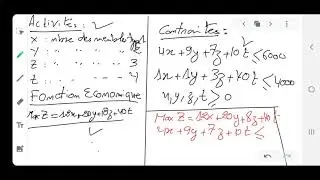 Activités:
x : nbre des meubles type 1
y " " " "
z : " " " " 3
t : " " " " 4
Fonction économique
Max Z = 12x+20y+8z+40t
Contraintes:
4x+9y+7z+10t ≤ 6000
x+y+3z+40t ≤ 4000
x,y,z,t ≥ 0
Max Z = 12x+20y+8z+40t
4x+9y+7z+10t ≤